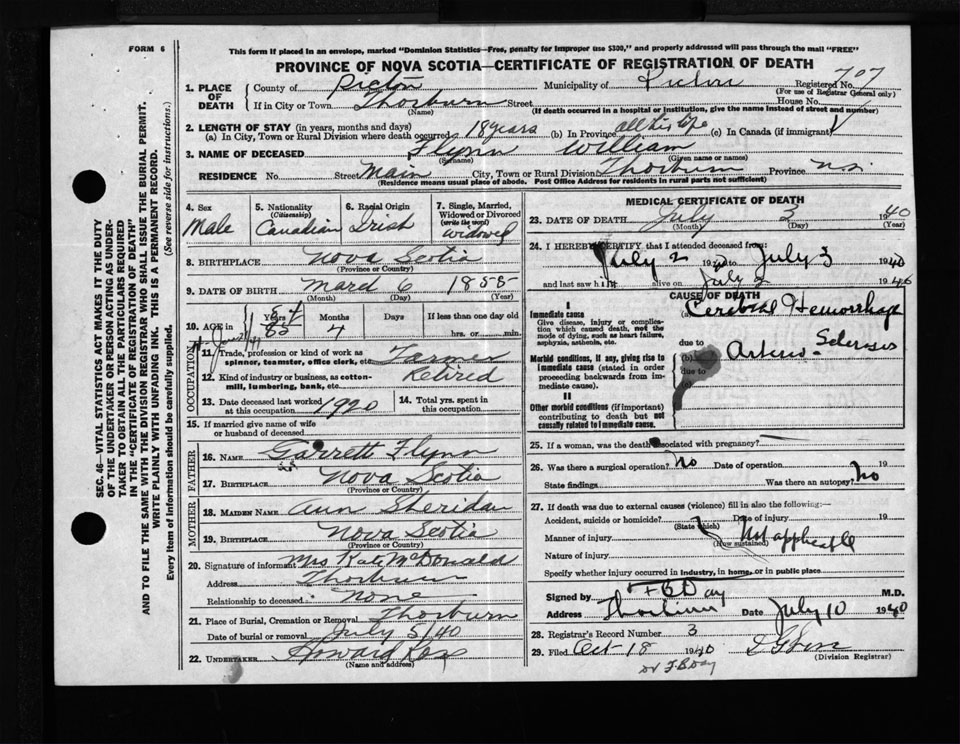 FORM 6
This form if placed in an envelope, marked "Dominion Statistics—Free, penalty for improper use $300," and properly addressed will pass through the mail "FREE"
PROVINCE OF NOVA SCOTIA—CERTIFICATE OF REGISTRATION OF DEATH
SEC. 46—VITAL STATISTICS ACT MAKES IT THE DUTY
OF THE UNDERTAKER OR PERSON ACTING AS UNDER-
TAKER TO OBTAIN ALL THE PARTICULARS REQUIRED
IN THE "CERTIFICATE OF REGISTRATION OF DEATH"
AND TO FILE THE SAME WITH THE DIVISION REGISTRAR WHO SHALL ISSUE THE BURIAL PERMIT.
WRITE PLAINLY WITH UNFADING INK. THIS IS A PERMANENT RECORD.
Every item of information should be carefully supplied. (See reverse side for instructions.)
1. PLACE OF DEATH County of Pictou Municipality of Pictou Registered No. 707
(For use of Registrar General only)
If in City or Town Thorburn Street House No.
(Name) (If death occurred in a hospital or institution, give the name instead of street and number)
2. LENGTH OF STAY (in years, months and days)
(a) In City, Town or Rural Division where death occurred 18 years (b) In Province all his life (c) In Canada (if immigrant)
3. NAME OF DECEASED Flynn William
(Surname) (Given name or names)
RESIDENCE No. Street Main City, Town or Rural Division Thorburn Province N.S.
(Residence means usual place of abode. Post Office Address for residents in rural parts not sufficient)
4. Sex Male
5. Nationality (Citizenship) Canadian
6. Racial Origin Irish
7. Single, Married, Widowed or Divorced (write the word) Widowed
8. BIRTHPLACE Nova Scotia
(Province or Country)
9. DATE OF BIRTH March 6 1855
(Month) (Day) (Year)
10. AGE in Years 85 Months 4 Days If less than one day old
hrs. or min.
OCCUPATION
11. Trade, profession or kind of work as spinner, teamster, office clerk, etc. Farmer
12. Kind of industry or business, as cotton-mill, lumbering, bank, etc. Retired
13. Date deceased last worked at this occupation 1920
14. Total yrs. spent in this occupation
15. If married give name of wife or husband of deceased
FATHER
16. NAME Garrett Flynn
17. BIRTHPLACE Nova Scotia
(Province or Country)
MOTHER
18. MAIDEN NAME Ann Sheridan
19. BIRTHPLACE Nova Scotia
(Province or Country)
20. Signature of informant Mrs Kate McDonald
Address Thorburn
Relationship to deceased None
21. Place of Burial, Cremation or Removal Thorburn
Date of burial or removal July 5/40
22. UNDERTAKER Howard
(Name and address)
MEDICAL CERTIFICATE OF DEATH
23. DATE OF DEATH July 3 1940
(Month) (Day) (Year)
24. I HEREBY CERTIFY that I attended deceased from:
July 2 1940 to July 3 1940
and last saw h alive on July 2 1940
CAUSE OF DEATH
I
Immediate cause Cerebral Hemorrhage
Give disease, injury or complication which caused death, not the mode of dying, such as heart failure, asphyxia, asthenia, etc.
due to
Morbid conditions, if any, giving rise to immediate cause (stated in order proceeding backwards from immediate cause). (b) Arterio-Sclerosis
due to
II
Other morbid conditions (if important) contributing to death but not causally related to immediate cause.
25. If a woman, was the death associated with pregnancy?
26. Was there a surgical operation? No Date of operation 19
State findings Was there an autopsy? No
27. If death was due to external causes (violence) fill in also the following:—
Accident, suicide or homicide? Date of injury 19
(State which)
Manner of injury Not applicable
(How sustained)
Nature of injury
Specify whether injury occurred in industry, in home, or in public place
Signed by F B Day M.D.
Address Thorburn Date July 10 1940
28. Registrar's Record Number 3
29. Filed Oct 18 1940
(Division Registrar)
Dr F. B. Day